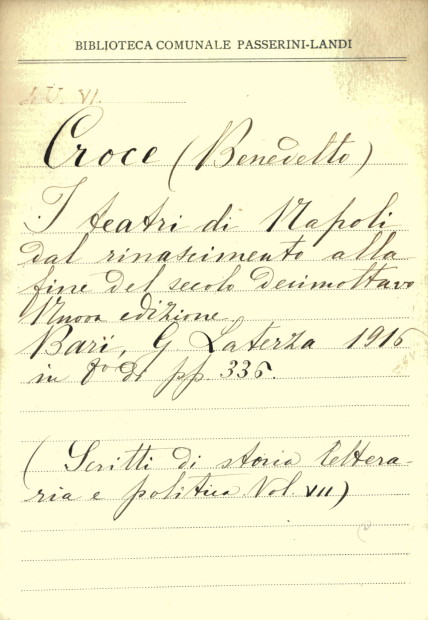 BIBLIOTECA COMUNALE PASSERINI-LANDI
VI.
Croce (Benedetto)
I teatri di Napoli
dal rinascimento alla
fine del secolo decimottavo
Nuova edizione
Bari, G Laterza 1916
in 8° di pp 336.
(Scritti di storia lettera-
ria e politica Vol. VII)